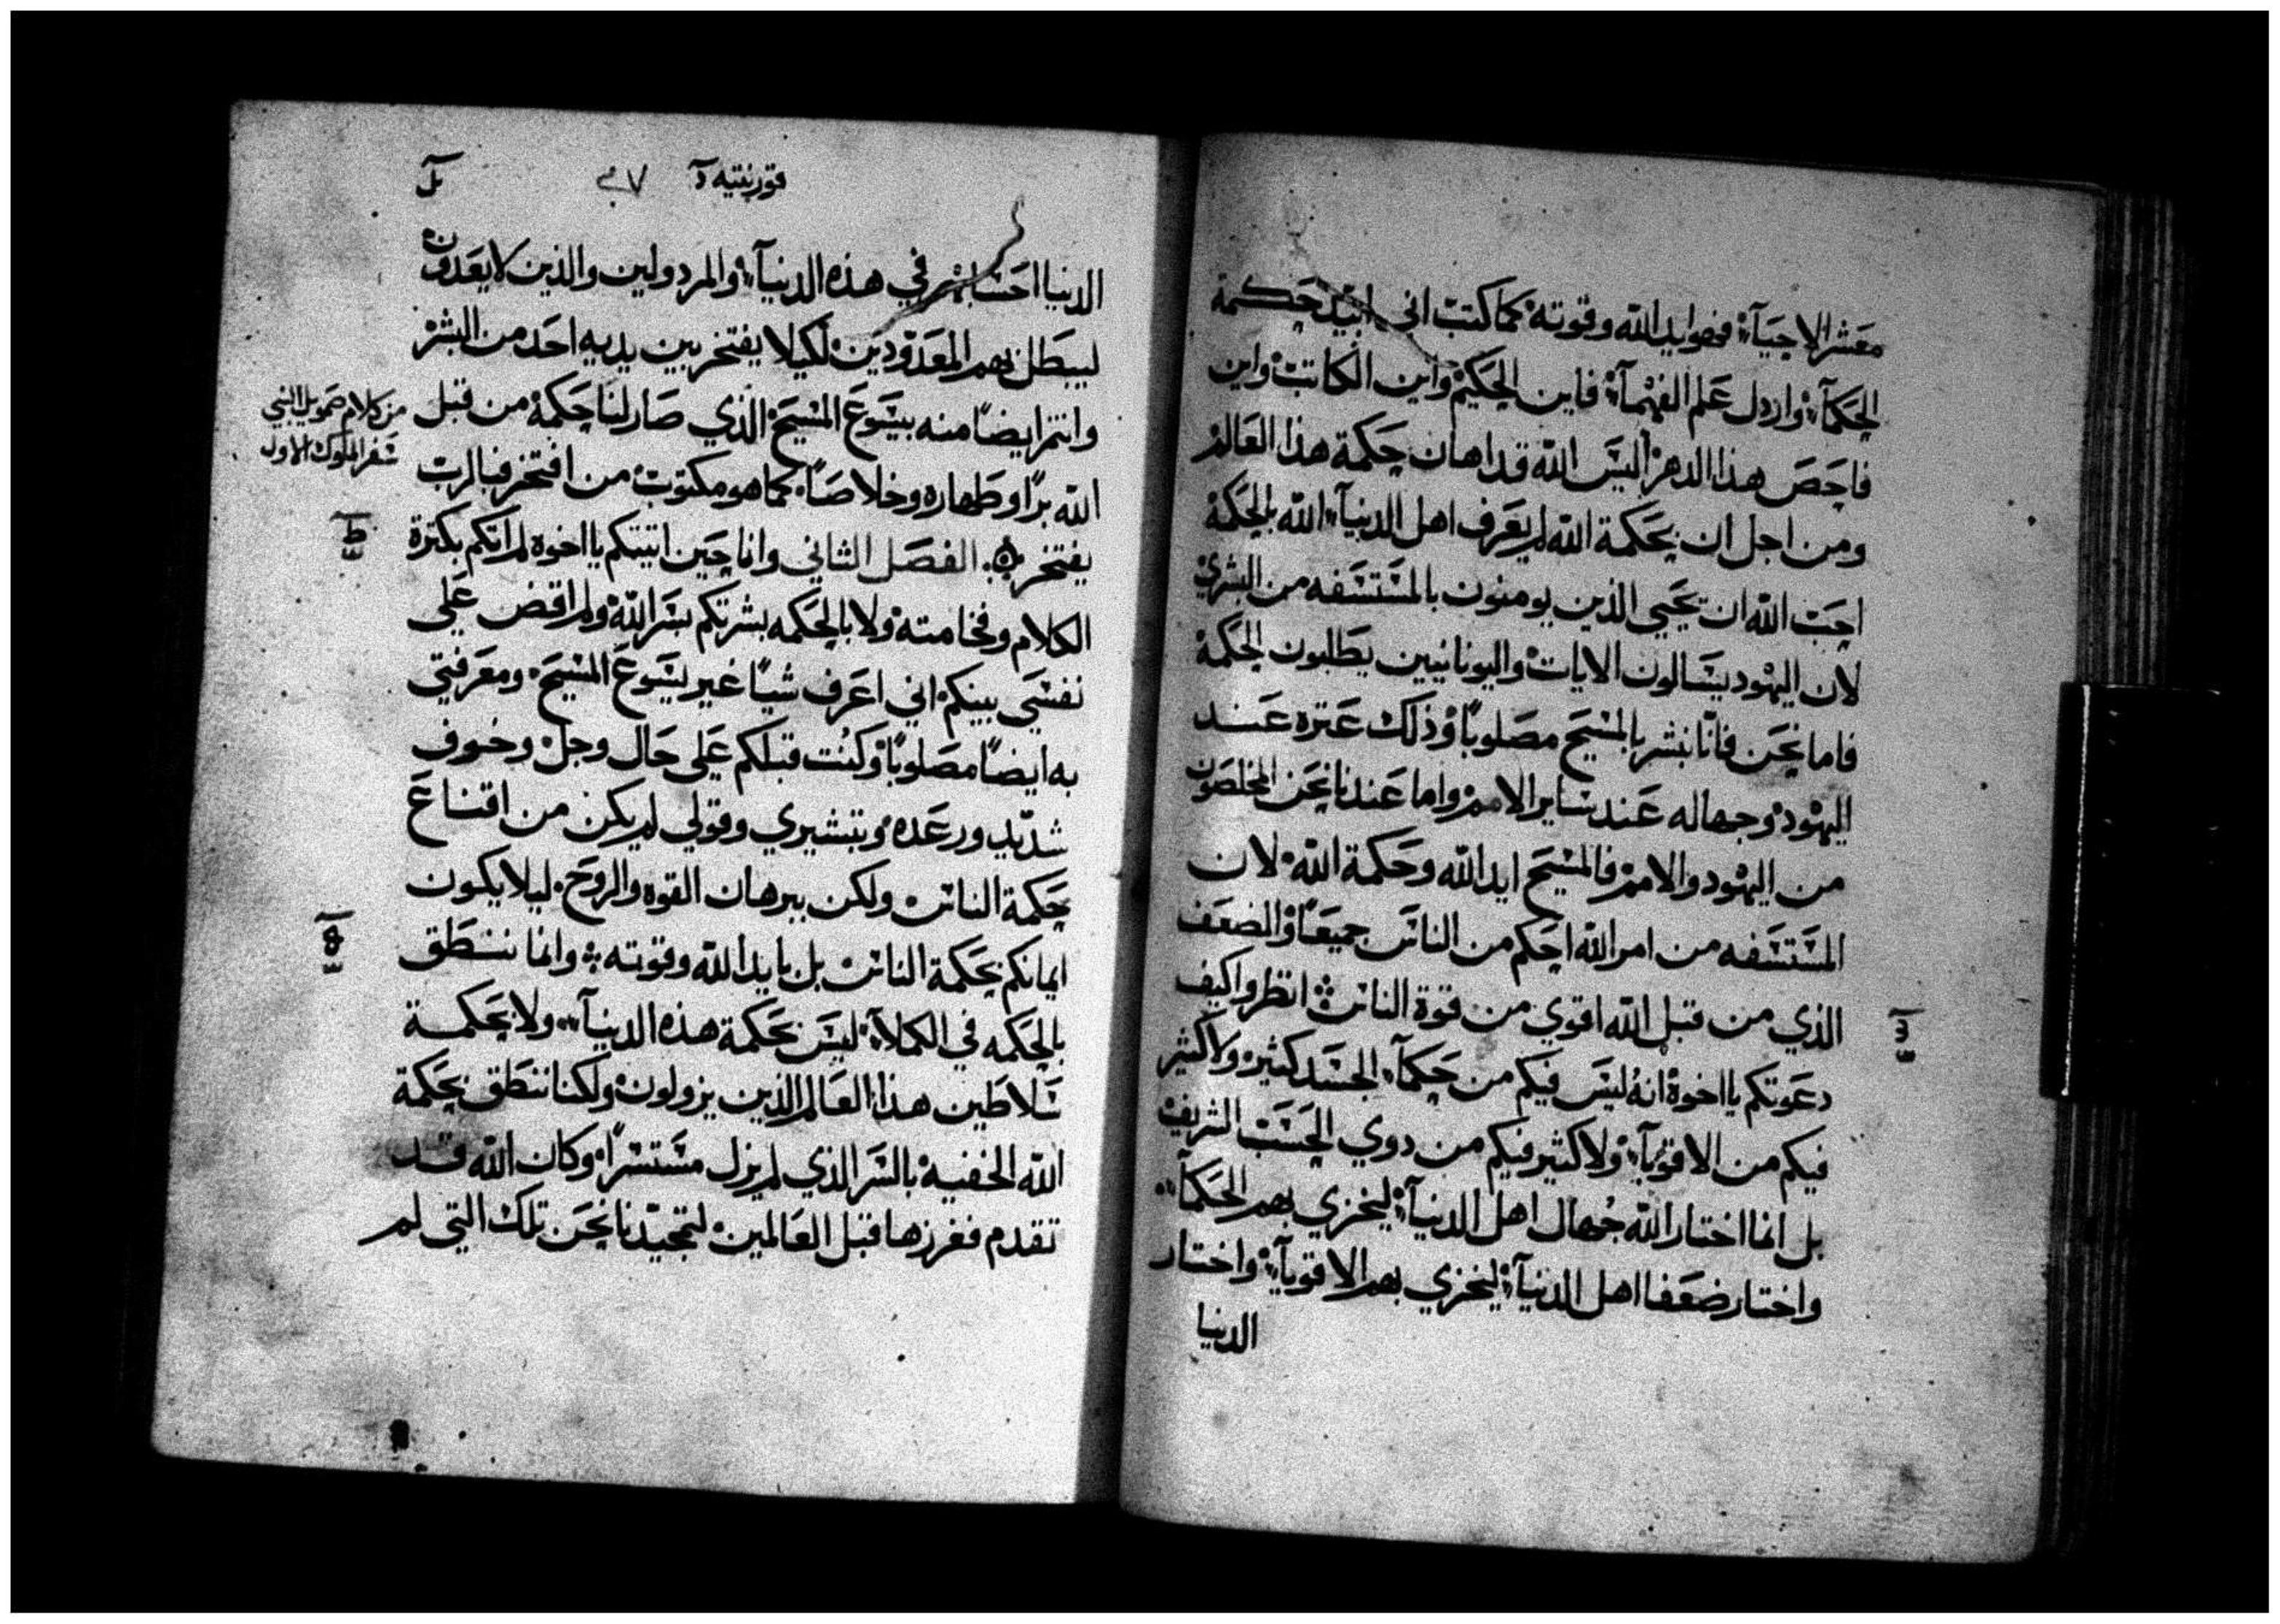 معشر الاحيآء فهو ايد الله وقوته كما كتب اني ابيد حكمة
الحكمآء واردل علم الفهمآء فاين الحكيم واين الكاتب واين
فاحص هذا الدهر اليس الله قد اهان حكمة هذا العالم
ومن اجل ان بحكمة الله لم يعرف اهل الدنيآء الله بالحكمة
احب الله ان يحيي الذين يومنون بالمستسفه من البشري
لان اليهود يسالون الايات واليونانيين يطلبون الحكمة
فاما نحن فانا نبشر بالمسيح مصلوبًا وذلك عتره عند
اليهود وجهاله عند ساير الامم واما عندنا نحن المخلصون
من اليهود والامم فالمسيح ايد الله وحكمة الله لان
المستسفه من امر الله احكم من الناس جميعًا والضعف
الذي من قبل الله اقوي من قوة الناس انظروا كيف
دعوتكم يااخوة انه ليس فيكم من حكمآء الجسد كثير ولا كثير
فيكم من الاقويآء ولا كثير فيكم من دوي الحسب الشريف
بل انما اختار الله جهال اهل الدنيآء ليخزي بهم الحكمآء
واختار ضعفا اهل الدنيآء ليخزي بهم الاقويآء واختار
الدنيا
قورنتيه
الدنيا احساب في هذه الدنيآء والمردولين والذين لا يعدون
ليبطل بهم المعدودين لكيلا يفتخر بين يديه احد من البشر
وانتم ايضًا منه بيسوع المسيح الذي صار لنا حكمة من قبل
الله برًا وطهاره وخلاصًا كما هو مكتوب من افتخر فبالرب
من كلام صمويل النبي
سفر الملوك الاول
يفتخر ۞ الفصل الثاني وانا حين اتيتكم يااخوة لم اتكم بكثرة
الكلام وفخامته ولا بالحكمه بشرتكم بسر الله ولم اقض علي
نفسي بينكم اني اعرف شيًا غير يسوع المسيح ومعرفتي
به ايضًا مصلوبًا وكنت قبلكم علي حال وجل وخوف
شديد ورعده وتبشيري وقولي لم يكن من اقناع
حكمة الناس ولكن ببرهان القوه والروح ليلا يكون
ايمانكم بحكمة الناس بل بايد الله وقوته وانما ننطق
بالحكمه في الكملآء ليس بحكمة هذه الدنيآء ولا بحكمة
سلاطين هذا العالم الذين يزولون ولكنا ننطق بحكمة
الله الخفية بالسر الذي لم يزل مستسرًا وكان الله قد
تقدم ففرزها قبل العالمين لتمجيدنا نحن تلك التي لم